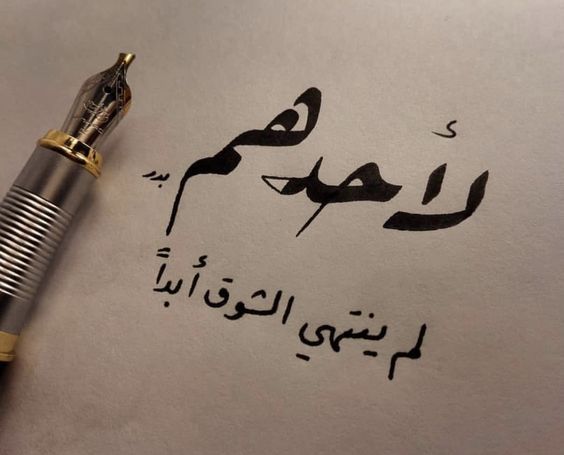 لأحدهم
بدر
لم ينتهي الشوق أبداً